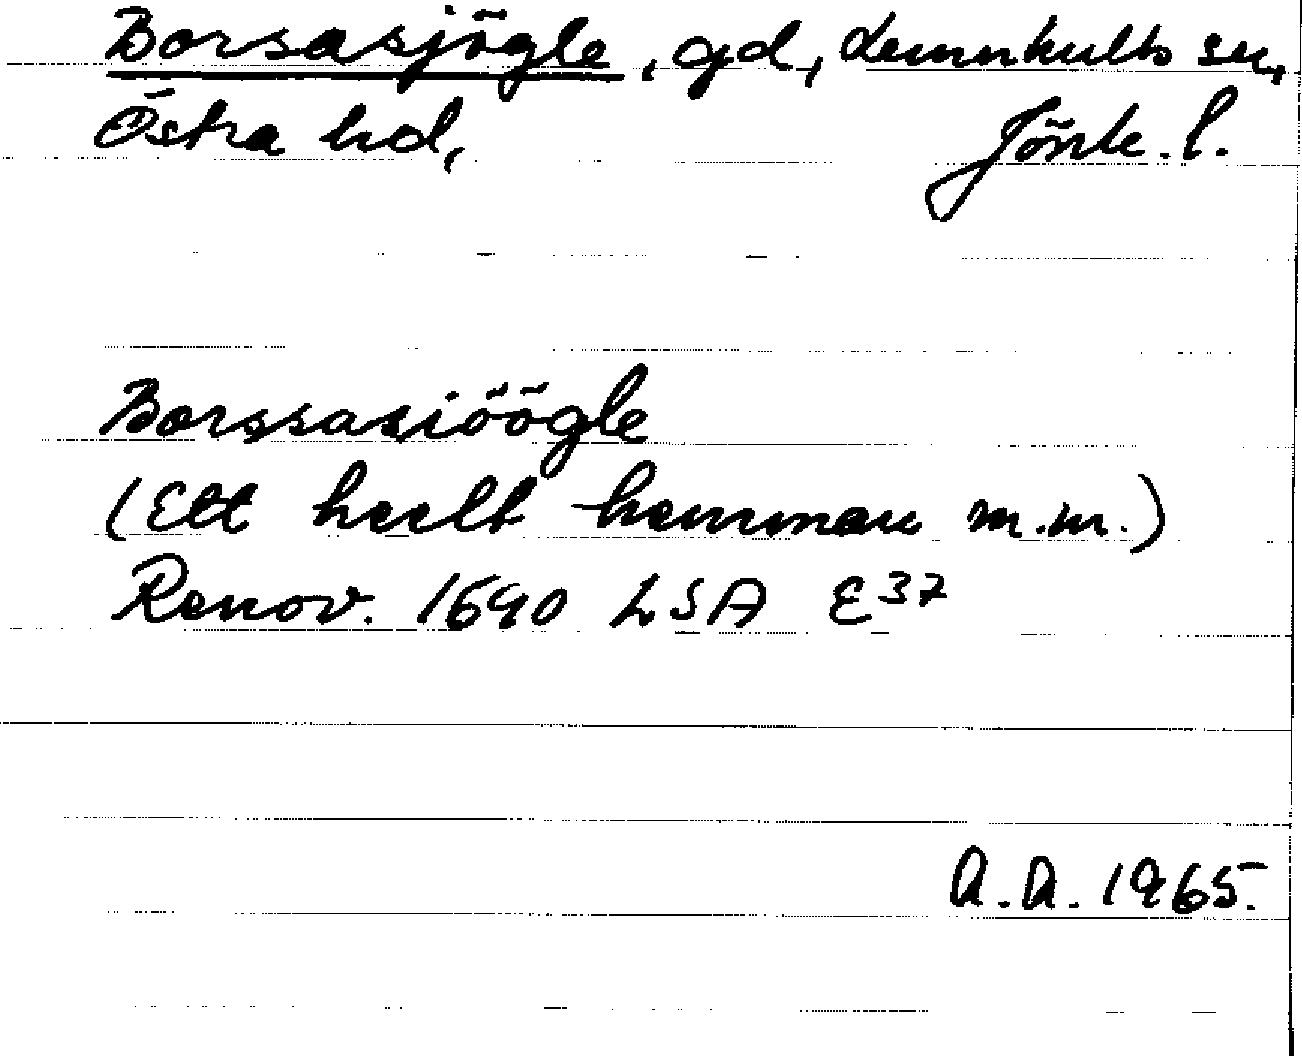 Borsasjögle, gd, Lemnhults sn,
Östra hd, Jönk. l.
Borssasiöögle
(Ett heelt hemman m.m.)
Renov. 1690 LSA E 37
A.A. 1965.